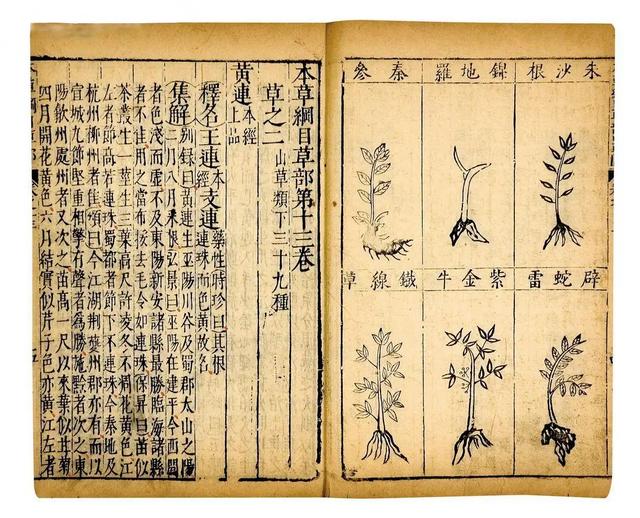 朱沙根
錦地羅
秦參
辟蛇雷
紫金牛
鐵線草
本草綱目草部第十三卷
草之二 山草類下三十九種
黃連 本經上品
釋名王連本經支連藥性時珍曰其根連珠而色黃故名
集解別錄曰黃連生巫陽川谷及蜀郡太山之陽二月八月采根弘景曰巫陽在建平今西間
者色淺而虛不及東陽新安諸縣最勝臨海諸縣
者不佳用之當布挼去毛令如連珠保昇曰苗似
茶叢生一莖生三葉高尺許凌冬不凋花黃色江
左者節高若連珠蜀都者節下不連珠今秦地及
杭州柳州者佳頌曰今江湖荊夔州郡亦有而以
宣城九節堅重相擊有聲者為勝施黔者次之東
陽歙州處州者又次之苗高一尺以來葉似甘菊
四月開花黃色六月結實似芹子色亦黃江左者